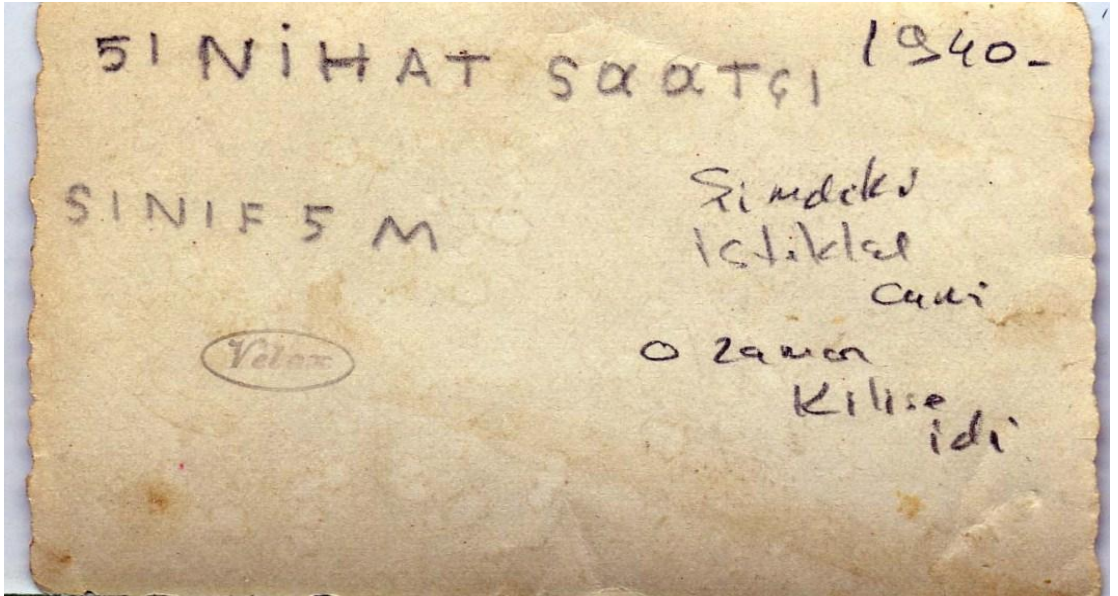 51 NİHAT SaaTÇI
1940-
SINIF 5 M
Şimdiki
istiklal
Cami
o zaman
Kilise
idi
Velox